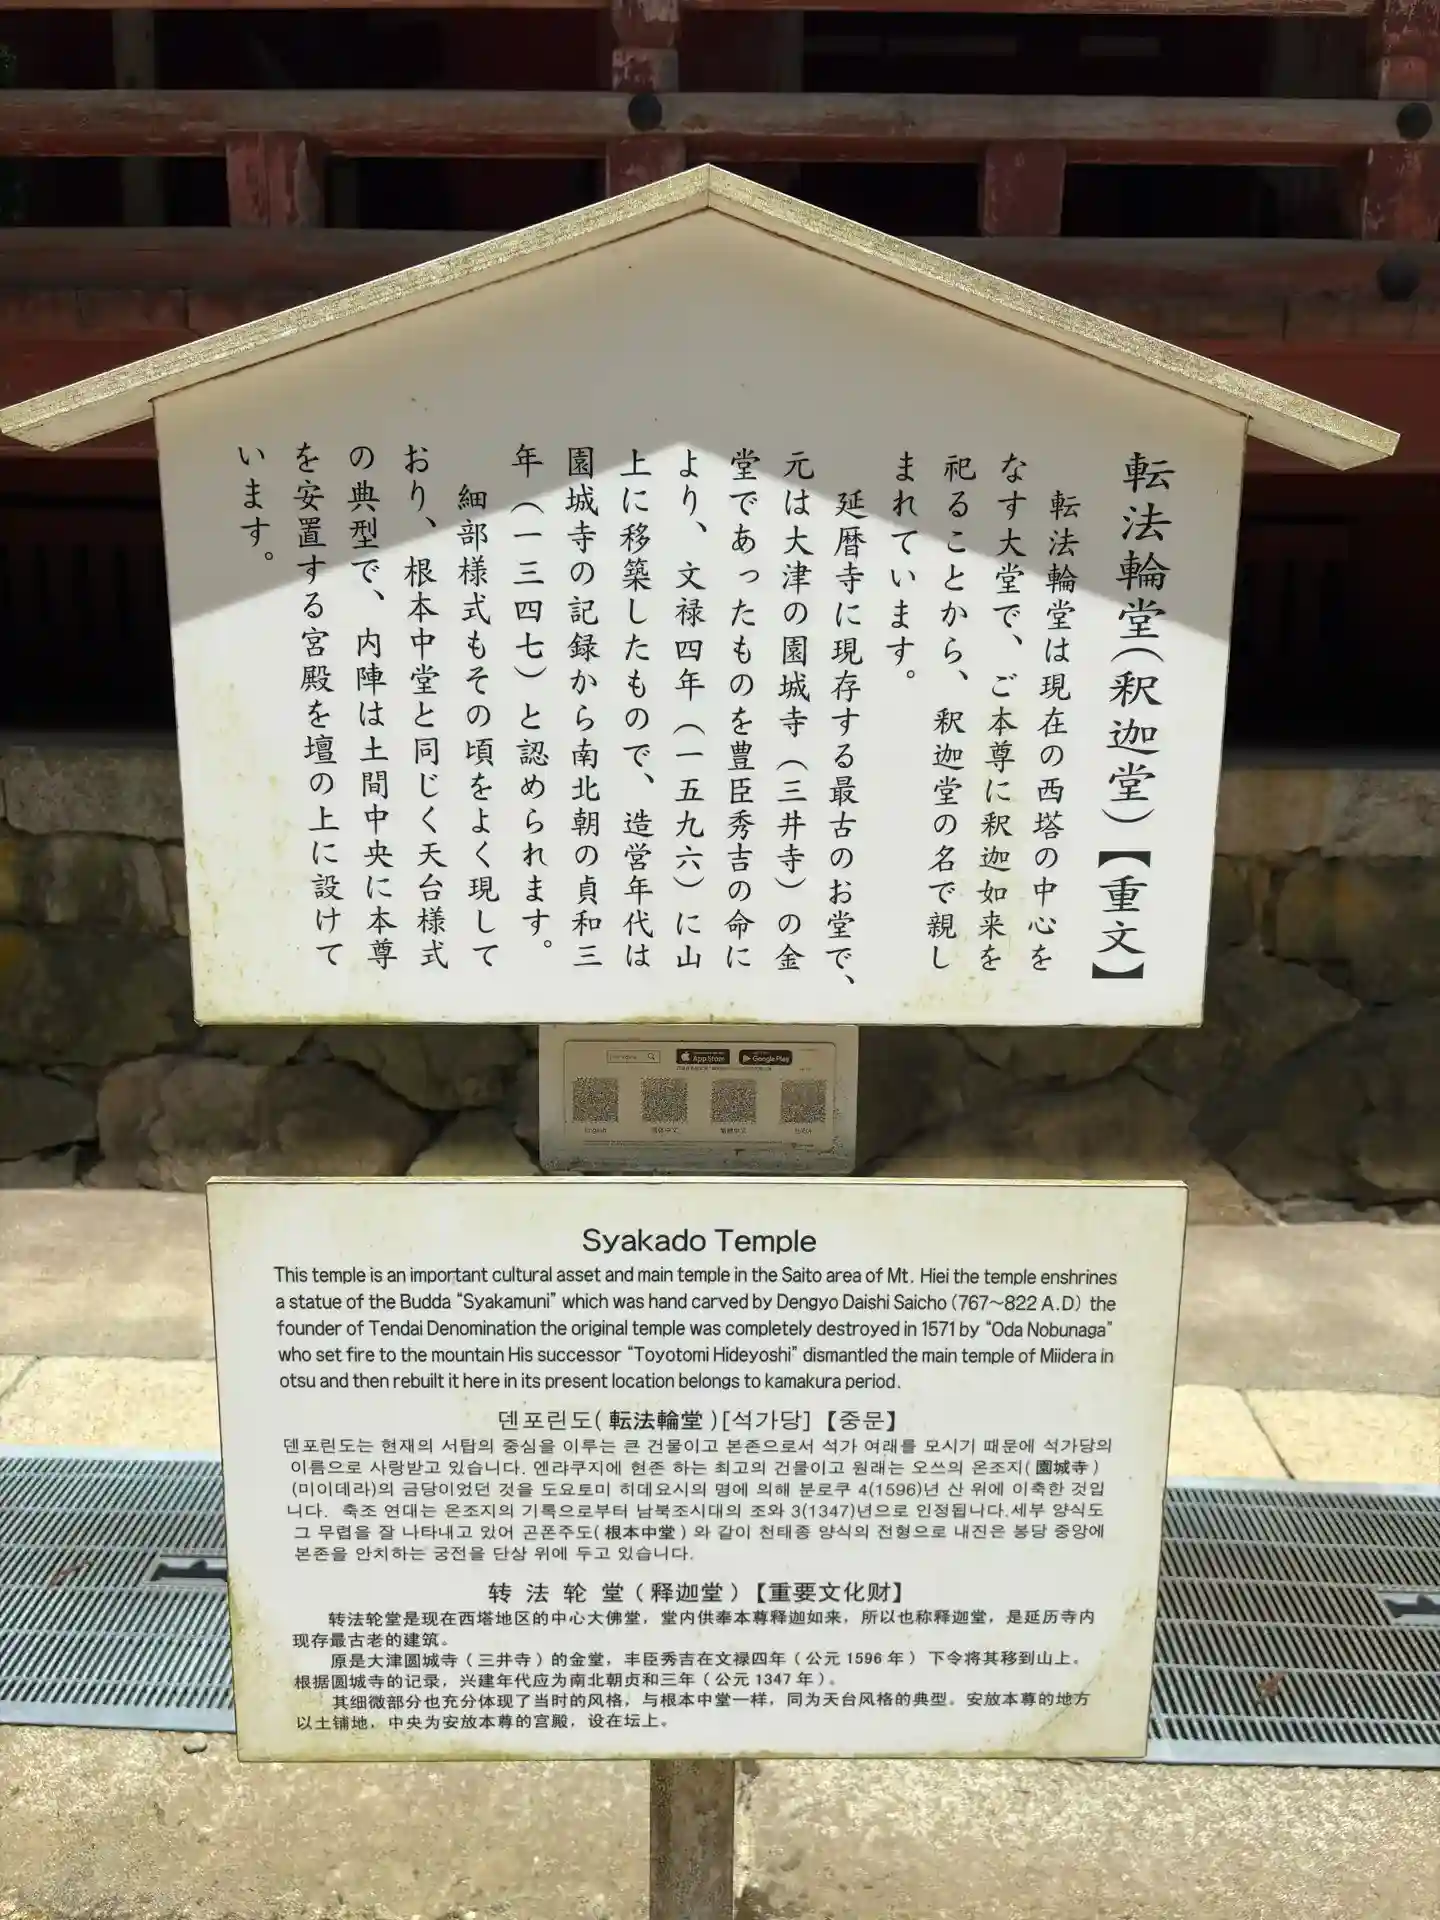 転法輪堂(釈迦堂)【重文】
転法輪堂は現在の西塔の中心を
なす大堂で、ご本尊に釈迦如来を
祀ることから、釈迦堂の名で親し
まれています。
延暦寺に現存する最古のお堂で、
元は大津の園城寺(三井寺)の金
堂であったものを豊臣秀吉の命に
より、文禄四年(一五九六)に山
上に移築したもので、造営年代は
園城寺の記録から南北朝の貞和三
年(一三四七)と認められます。
細部様式もその頃をよく現して
おり、根本中堂と同じく天台様式
の典型で、内陣は土間中央に本尊
を安置する宮殿を壇の上に設けて
います。
App Store
Google Play
English
Syakado Temple
This temple is an important cultural asset and main temple in the Saito area of Mt. Hiei the temple enshrines
a statue of the Budda “Syakamuni” which was hand carved by Dengyo Daishi Saicho (767～822 A.D) the
founder of Tendai Denomination the original temple was completely destroyed in 1571 by “Oda Nobunaga”
who set fire to the mountain His successor “Toyotomi Hideyoshi” dismantled the main temple of Miidera in
otsu and then rebuilt it here in its present location belongs to kamakura period.
덴포린도(転法輪堂)[석가당]【중문】
덴포린도는 현재의 서탑의 중심을 이루는 큰 건물이고 본존으로서 석가 여래를 모시기 때문에 석가당의
이름으로 사랑받고 있습니다. 엔랴쿠지에 현존 하는 최고의 건물이고 원래는 오쓰의 온조지(園城寺)
(미이데라)의 금당이었던 것을 도요토미 히데요시의 명에 의해 분로쿠 4(1596)년 산 위에 이축한 것입
니다. 축조 연대는 온조지의 기록으로부터 남북조시대의 조와 3(1347)년으로 인정됩니다.세부 양식도
그 무렵을 잘 나타내고 있어 곤폰주도(根本中堂) 와 같이 천태종 양식의 전형으로 내진은 봉당 중앙에
본존을 안치하는 궁전을 단상 위에 두고 있습니다.
转 法 轮 堂(释迦堂)【重要文化财】
转法轮堂是现在西塔地区的中心大佛堂，堂内供奉本尊释迦如来，所以也称释迦堂，是延历寺内
现存最古老的建筑。
原是大津圆城寺(三井寺)的金堂，丰臣秀吉在文禄四年(公元1596年) 下令将其移到山上。
根据圆城寺的记录，兴建年代应为南北朝贞和三年(公元1347年)。
其细微部分也充分体现了当时的风格，与根本中堂一样，同为天台风格的典型。安放本尊的地方
以土铺地，中央为安放本尊的宫殿，设在坛上。